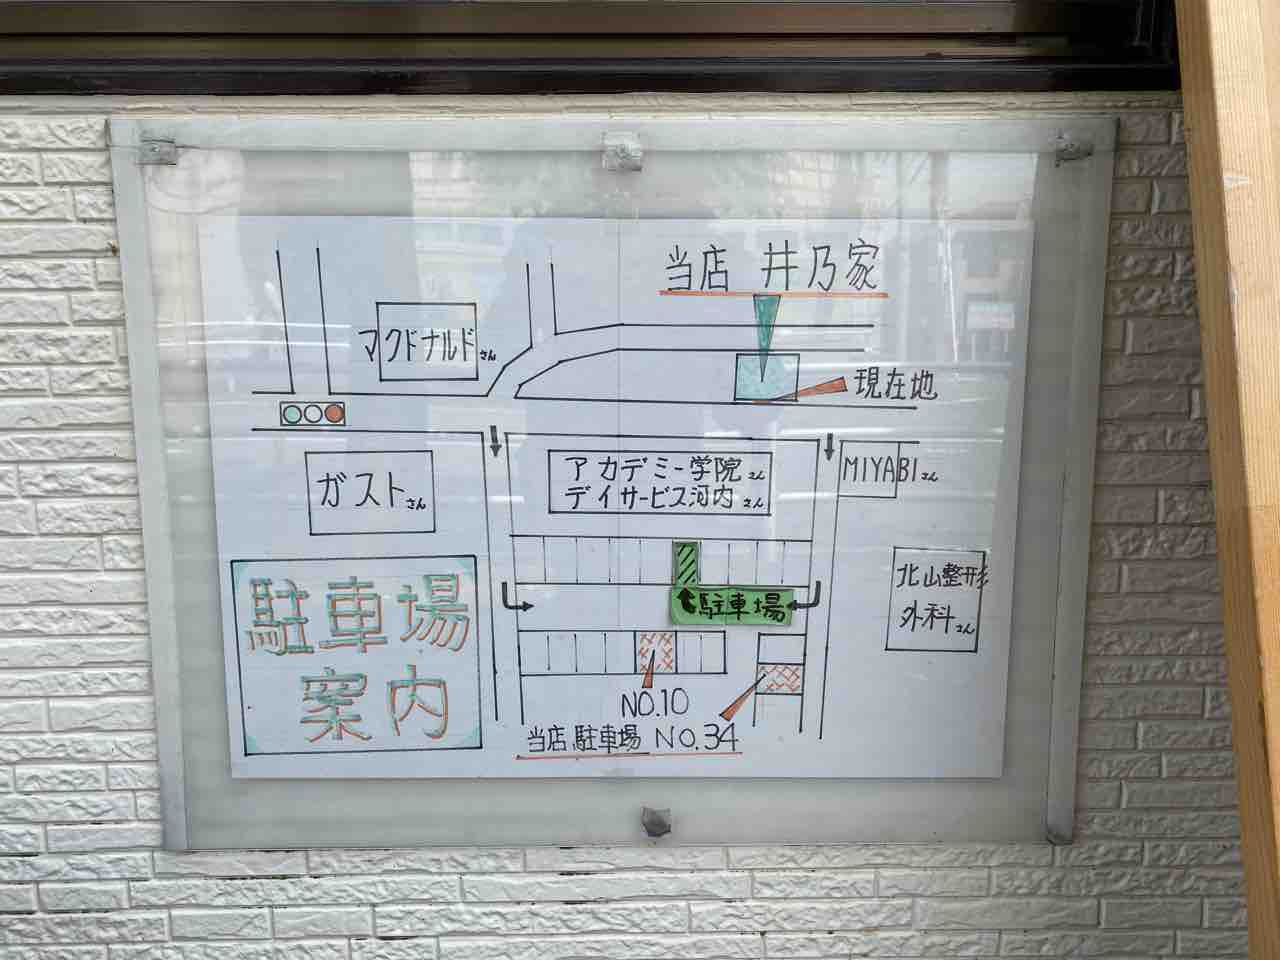 当店 井乃家
マクドナルドさん
現在地
ガストさん
アカデミー学院さん
デイサービス河内さん
MIYABIさん
北山整形
外科さん
駐車場
駐車場
案内
NO.10
当店駐車場 NO.34